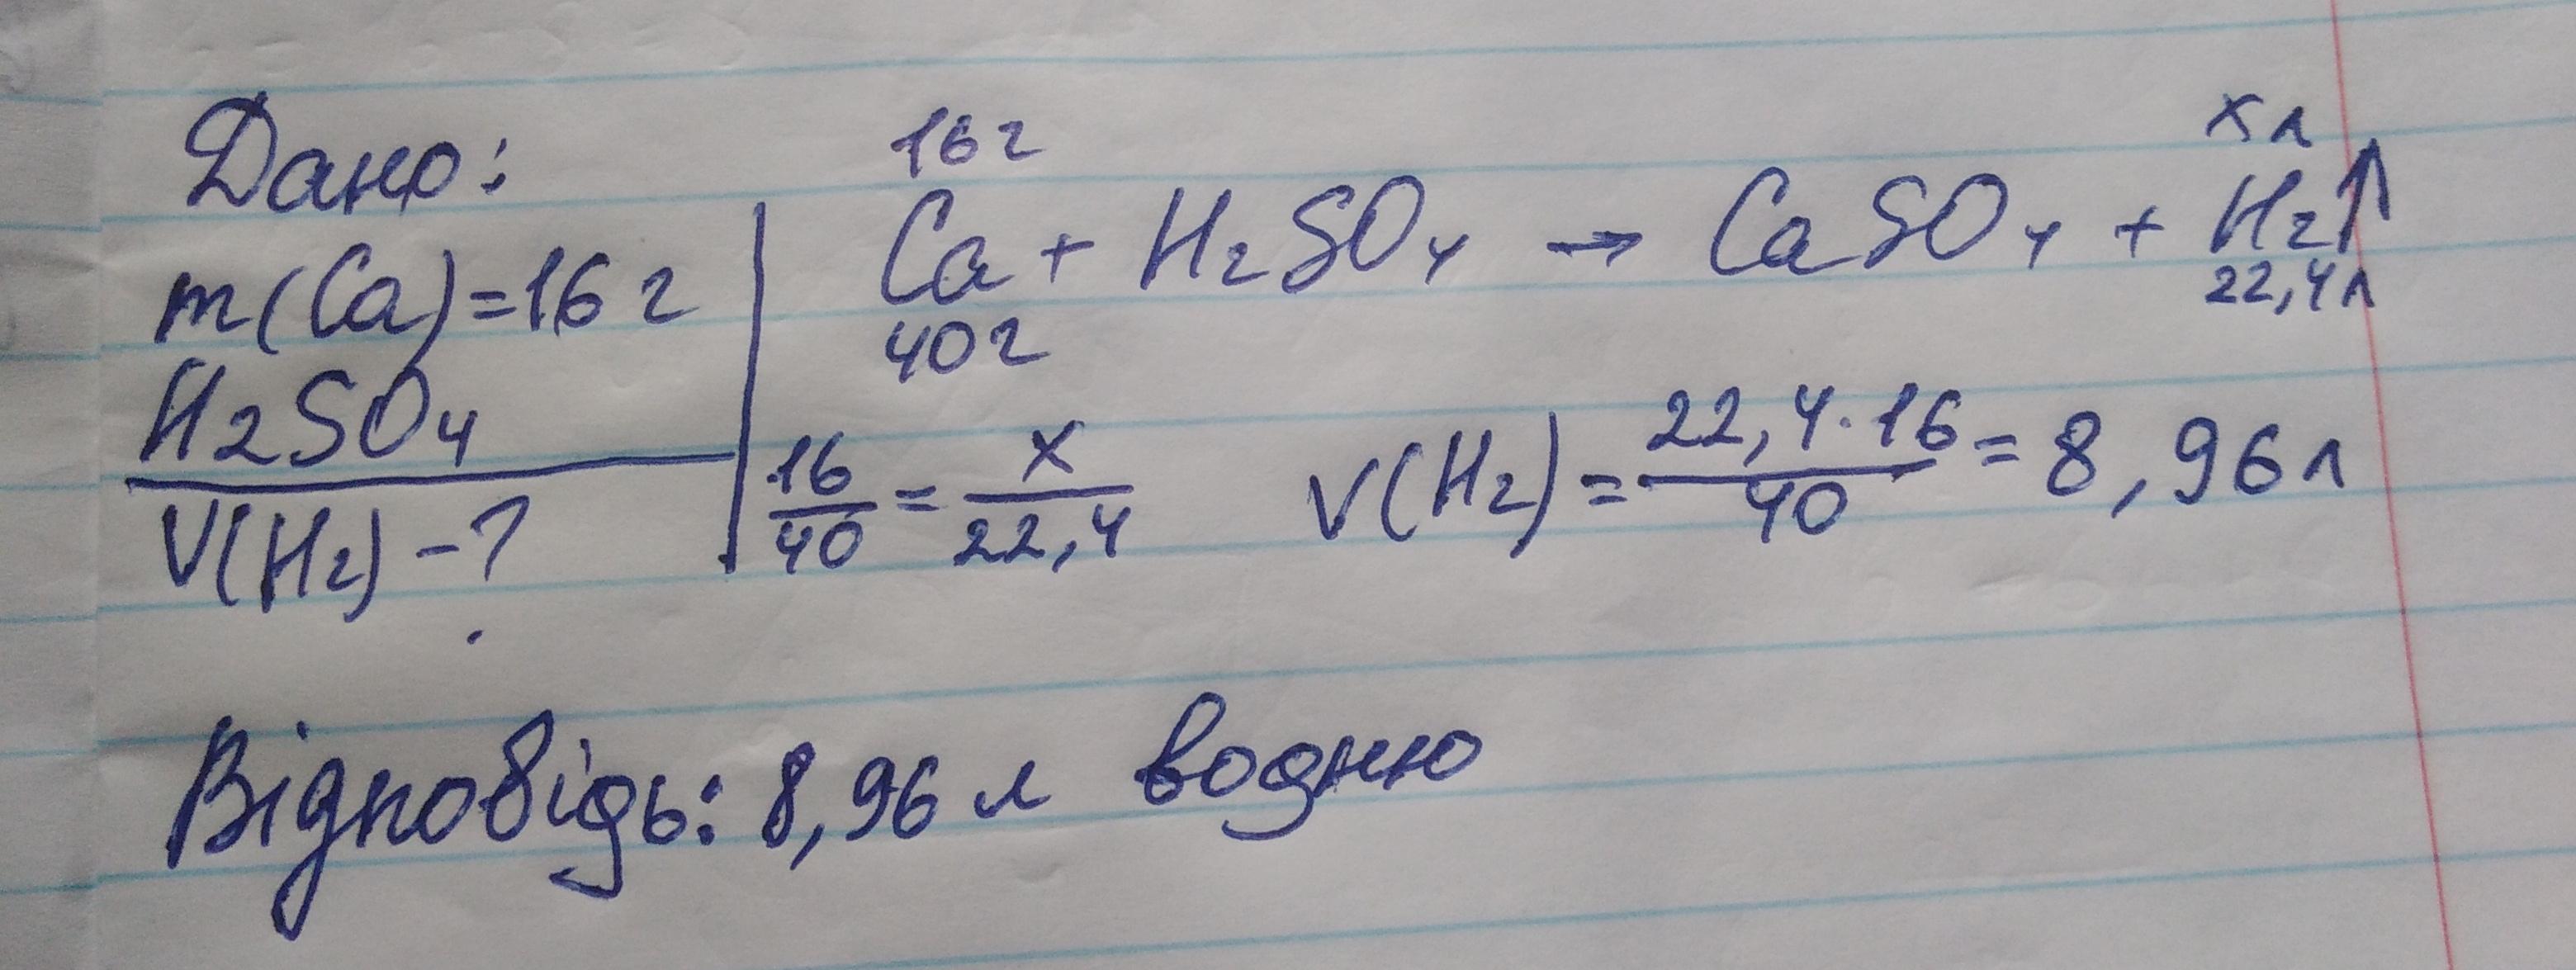 Дано:
m(Ca)=16 г
H₂SO₄
V(H₂) - ?
16 г x л
Ca + H₂SO₄ → CaSO₄ + H₂↑
40 г 22,4 л
16/40 = x/22,4 V(H₂) = 22,4·16/40 = 8,96 л
Відповідь: 8,96 л водню